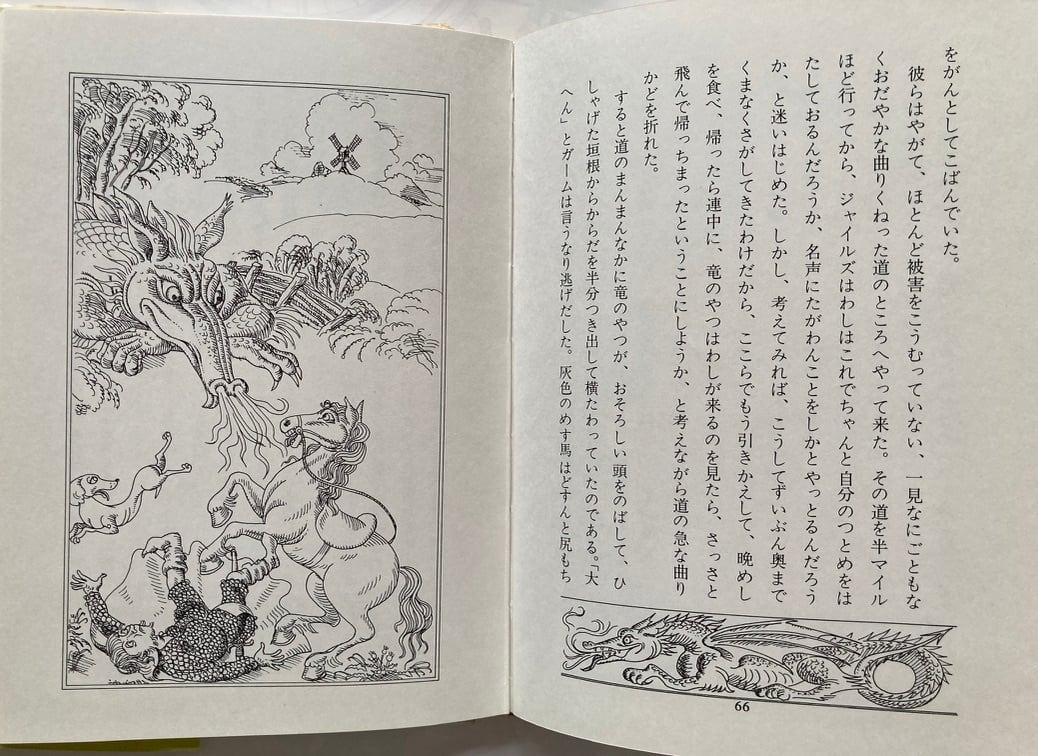 をがんとしてこばんでいた。
彼らはやがて、ほとんど被害をこうむっていない、一見なにごともな
くおだやかな曲りくねった道のところへやって来た。その道を半マイル
ほど行ってから、ジャイルズはわしはこれでちゃんと自分のつとめをは
たしておるんだろうか、名声にたがわんことをしかとやっとるんだろう
か、と迷いはじめた。しかし、考えてみれば、こうしてずいぶん奥まで
くまなくさがしてきたわけだから、ここらでもう引きかえして、晩めし
を食べ、帰ったら連中に、竜のやつはわしが来るのを見たら、さっさと
飛んで帰っちまったということにしようか、と考えながら道の急な曲り
かどを折れた。
すると道のまんまんなかに竜のやつが、おそろしい頭をのばして、ひ
しゃげた垣根からからだを半分つき出して横たわっていたのである。「大
へん」とガームは言うなり逃げだした。灰色のめす馬はどすんと尻もち
66